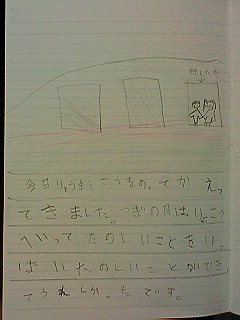 今日りょうほうごうもの。でかえっ
てきました。つぎの月はりょこう
へいってたのしいことをい
ぱいたのしいことができ
てうれしかったです。